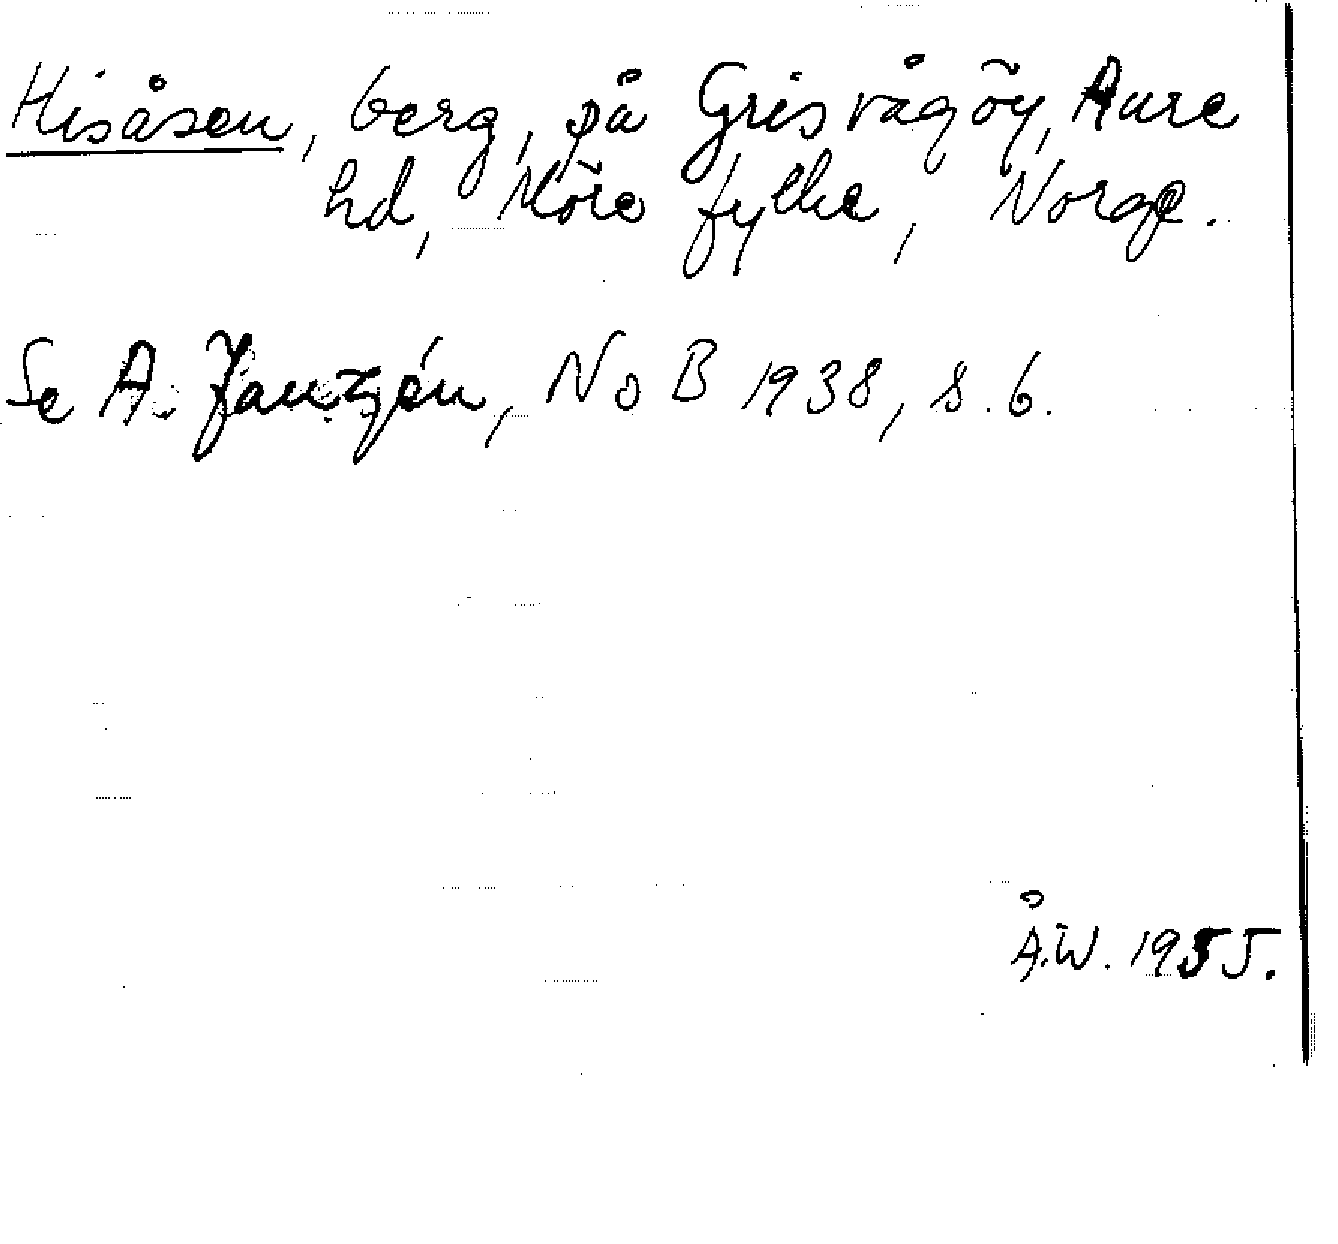 Hisåsen, berg, på Grisvågöy, Aure
hd, Möre fylke, Norge.
Se A. Janzén, NoB 1938, s. 6.
Å.W. 1955.